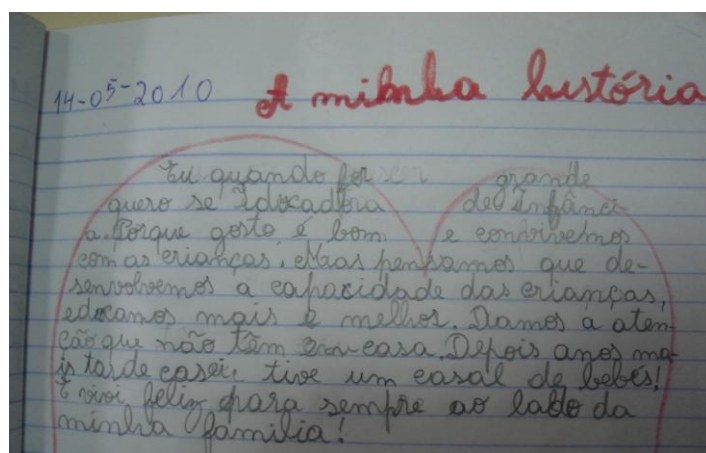 14-05-2010 A minha história
Eu quando for grande
quero se Idocadora de Infânci-
a. Porque gosto é bom e convivemos
com as crianças. Mas pensamos que de-
senvolvemos a capacidade das crianças,
edocamos mais e melhor. Damos a aten-
ção que não têm em casa. Depois anos ma-
is tarde casei, tive um casal de bebés!
E vivi feliz para sempre ao lado da
minha família!